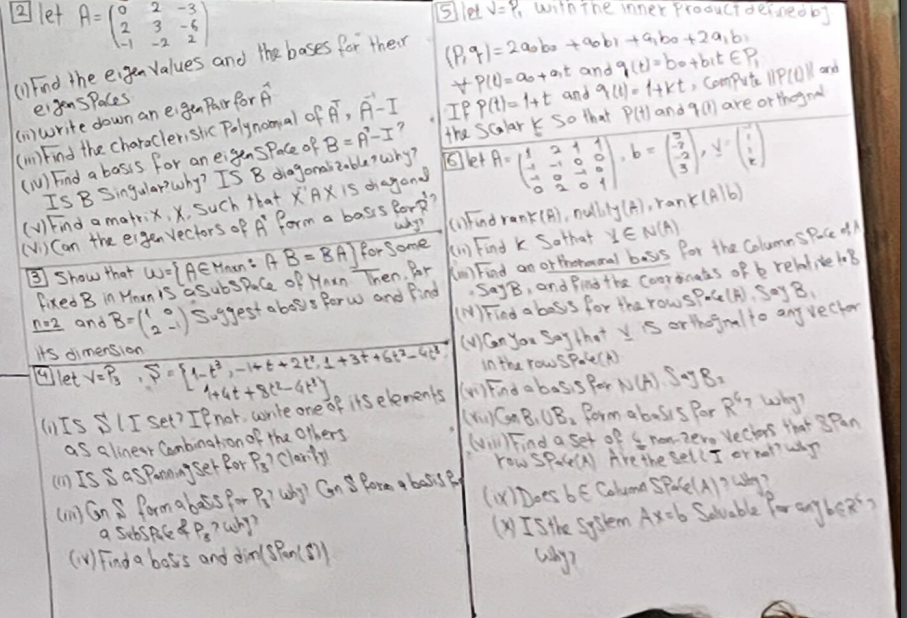 [2] let A = (0 2 -3
2 3 -6
-1 -2 2)
(i) Find the eigen values and the bases for their
eigen spaces
(ii) write down an eigen Pair for A
(iii) Find the characteristic Polynomial of
(iv) Find a basis for an eigen space of B = A - I?
Is B Singular? why? Is B diagonalizable? why?
(v) Find a matrix, X, such that X⁻¹AX is diagonal
(vi) Can the eigen vectors of A form a basis for R³?
why?
[3] Show that W = {A ∈ Mnxn : AB = BA} for some
fixed B in Mnxn is a subspace of Mnxn Then, for
n=2 and B = (1 0
2 -1) Suggest a basis for W and find
its dimension
[4] let V = P₃, S = {1-t³, -1+t+2t², 1+3t+6t²-4t³,
1+4t+8t²-4t³}
(i) Is S L I set? If not, write one of its elements
as a linear Combination of the others
(ii) Is S a spanning set for P₃? Clarify!
(iii) Can S form a basis for P₃? why? Can S form a basis for
a subspace of P₃? why?
(iv) Find a basis and dim(span(S))
[5] let V = P₁ with the inner product defined by
(P, q) = 2a₀b₀ + a₀b₁ + a₁b₀ + 2a₁b₁
∀ P(t) = a₀ + a₁t and q(t) = b₀ + b₁t ∈ P₁
If P(t) = 1+t and q(t) = 1+kt, Compute ||P(t)|| and
the Scalar k so that P(t) and q(t) are orthognal
[6] let A = (1 2 1 1
-1 -1 0 0
-1 0 -1 0
0 2 0 1), b =
(i) Find rank(A), nullity(A), rank(A|b)
(ii) Find k so that V ∈ N(A)
(iii) Find an orthonormal basis for the Column Space of A
, Say B, and find the Coordinates of b relative to B
(iv) Find a basis for the row space(A). Say B₁
(v) Can you say that V is orthognal to any vector
in the row space(A)
(vi) Find a basis for N(A). Say B₂
(vii) Can B₁ U B₂ form a basis for R⁴? why?
(viii) Find a set of 4 non-zero vectors that span
row space(A) Are the set L I or not? why?
(ix) Does b ∈ Column Space(A)? why?
(x) Is the system Ax=b Solvable for any b ∈ R⁴?
why?